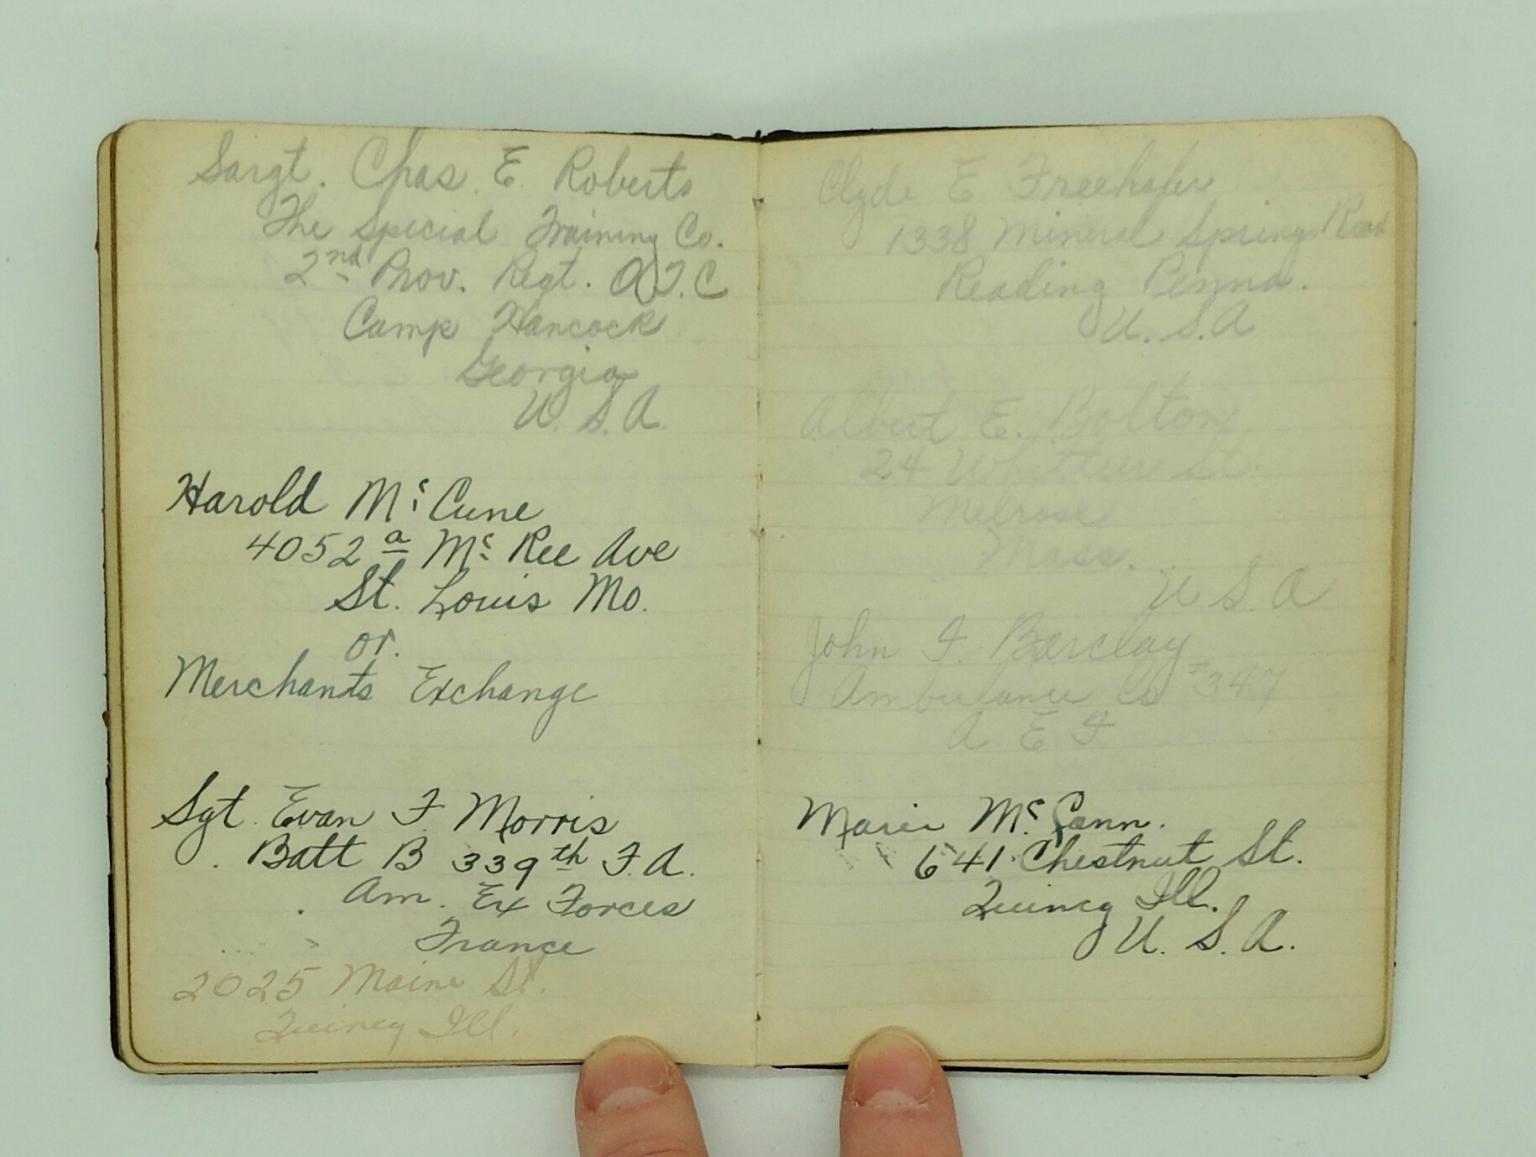 Sargt. Chas. E. Roberts
The Special Training Co.
2nd Prov. Regt. O.T.C
Camp Hancock
Georgia
U. S. A.
Harold Mc Cune
4052 a Mc Ree Ave
St. Louis Mo.
or.
Merchants Exchange
Sgt. Evan F Morris
Batt B 339th F.A.
Am. Ex Forces
France
2025 Maine St.
Quincy Ill.
Clyde E Freehafer
1338 Mineral Springs Road
Reading Penna.
U. S. A
Albert E. Bolton
24 Whittier St.
Melrose
Mass.
U S. A
John F. Barclay
Ambulance Co #347
A E F
Marie Mc Cann.
641 Chestnut St.
Quincy Ill.
U. S. A.